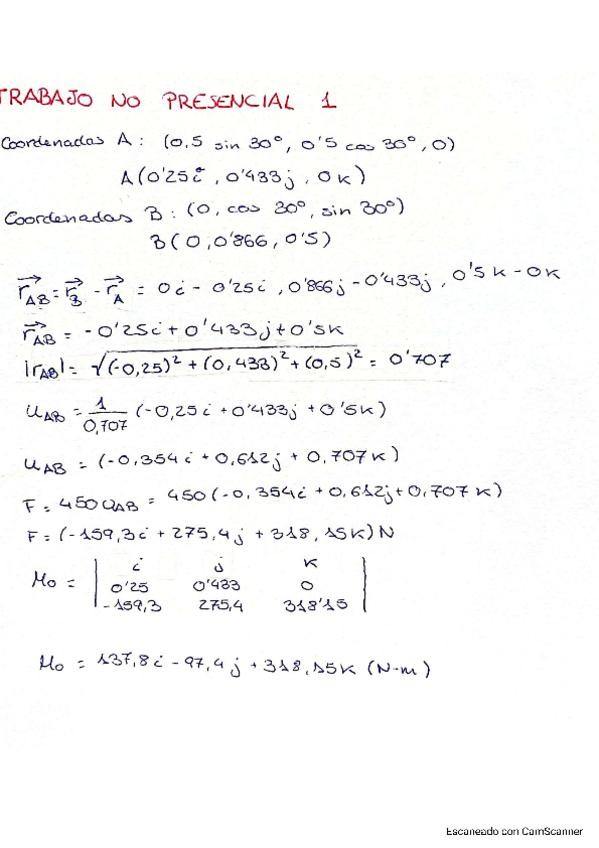 TRABAJO NO PRESENCIAL 1
Coordenadas A: (0,5 sin 30°, 0'5 cos 30°, 0)
A(0'25i, 0'433j, 0k)
Coordenadas B: (0, cos 30°, sin 30°)
B(0, 0'866, 0'5)
r⃗AB = r⃗B - r⃗A = 0i - 0'25i, 0'866j - 0'433j, 0'5k - 0k
r⃗AB = -0'25i + 0'433j + 0'5k
|rAB| = √(-0,25)² + (0,433)² + (0,5)² = 0'707
uAB = 1/0,707 (-0,25i + 0'433j + 0'5k)
uAB = (-0,354i + 0,612j + 0,707k)
F = 450uAB = 450(-0,354i + 0,612j + 0,707k)
F = (-159,3i + 275,4j + 318,15k)N
i j k
Mo = | 0'25 0'433 0 |
-159,3 275,4 318'15
Mo = 137,8i - 97,4j + 318,15k (N-m)
Escaneado con CamScanner